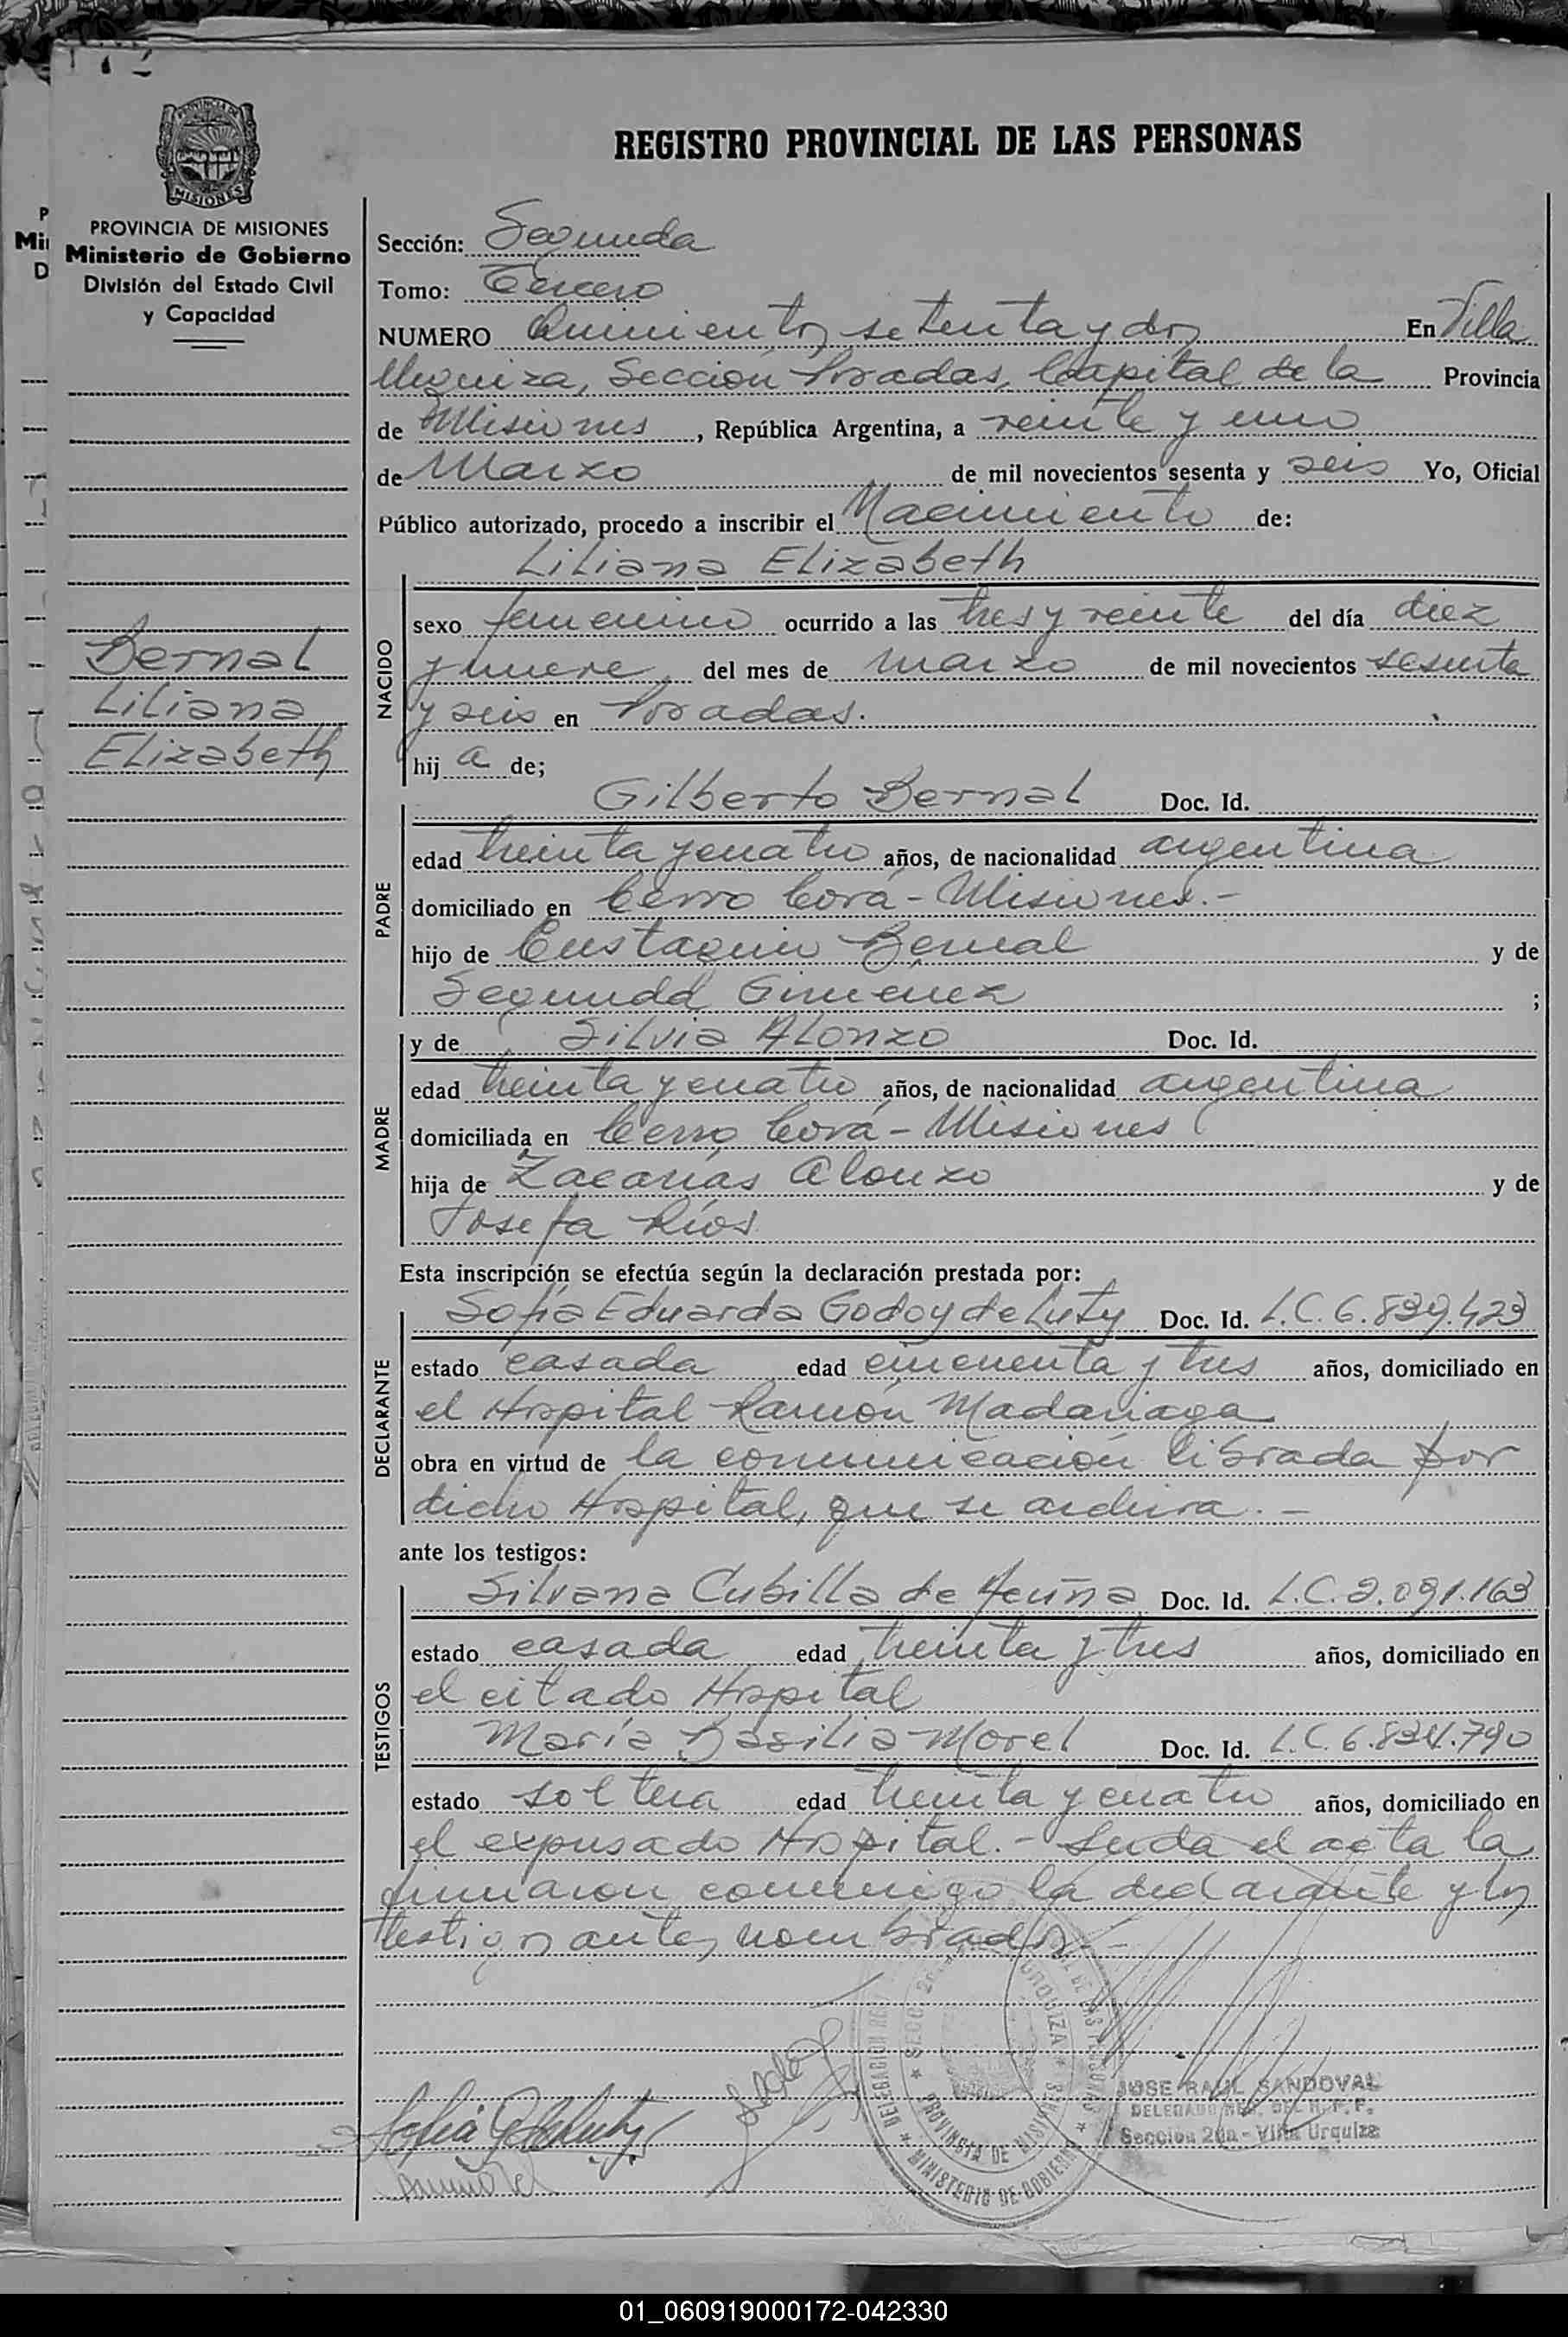 REGISTRO PROVINCIAL DE LAS PERSONAS
PROVINCIA DE MISIONES
Ministerio de Gobierno
División del Estado Civil
y Capacidad
Bernal
Liliana
Elizabeth
Sección: Segunda
Tomo: Tercero
NUMERO Quinientos setenta y dos En Villa
Urquiza, Sección Posadas, Capital de la Provincia
de Misiones, República Argentina, a veinte y uno
de Marzo de mil novecientos sesenta y seis Yo, Oficial
Público autorizado, procedo a inscribir el Nacimiento de:
Liliana Elizabeth
NACIDO
sexo femenino ocurrido a las tres y veinte del día diez
y nueve del mes de marzo de mil novecientos sesenta
y seis en Posadas.
hij a de;
Gilberto Bernal Doc. Id.
PADRE
edad treinta y cuatro años, de nacionalidad argentina
domiciliado en Cerro Corá - Misiones.-
hijo de Eustaquio Bernal y de
Segunda Gimenez ;
y de Silvia Alonzo Doc. Id.
MADRE
edad treinta y cuatro años, de nacionalidad argentina
domiciliada en Cerro Corá - Misiones
hija de Zacarías Alonzo y de
Josefa Ríos
Esta inscripción se efectúa según la declaración prestada por:
Sofía Eduarda Godoy de Luty Doc. Id. L.C. 6.839.423
DECLARANTE
estado casada edad cincuenta y tres años, domiciliado en
el Hospital Ramón Madariaga
obra en virtud de la comunicación librada por
dicho Hospital, que se archiva.-
ante los testigos:
Silvana Cubilla de Acuña Doc. Id. L.C. 2.091.163
TESTIGOS
estado casada edad treinta y tres años, domiciliado en
el citado Hospital
María Basilia Morel Doc. Id. L.C. 6.834.790
estado soltera edad treinta y cuatro años, domiciliado en
el expresado Hospital.- Leida el acta la
firmaron conmigo la declarante y los
testigos antes nombrados.-
JOSE RAUL SANDOVAL
Sección 2da - Villa Urquiza
PROVINCIA DE MISIONES
MINISTERIO DE GOBIERNO
01_060919000172-042330